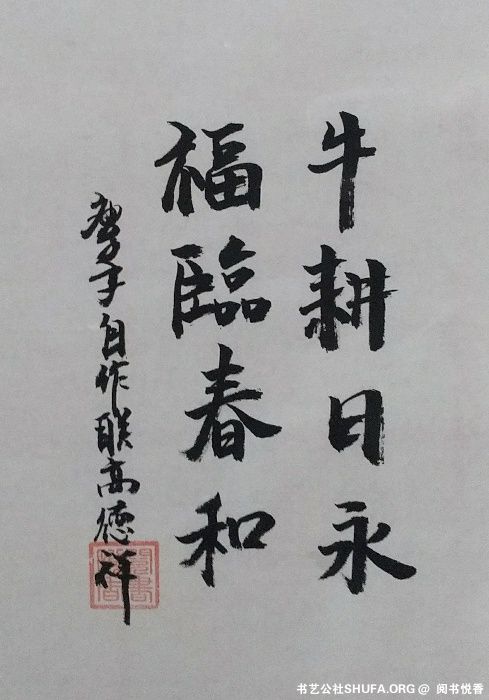 牛耕日永
福臨春和
自作联高德祥
书艺公社SHUFA.ORG @ 阅书悦香